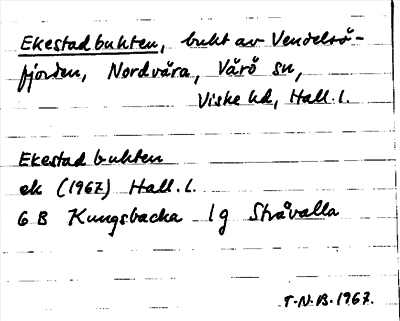 Ekestadbukten, bukt av Vendelsö-
fjorden, Nordvära, Värö sn,
Viske hd, Hall. l.
Ekestadbukten
ek (1967) Hall. l.
6 B Kungsbacka 1 g Stråvalla
T.N.B. 1967.